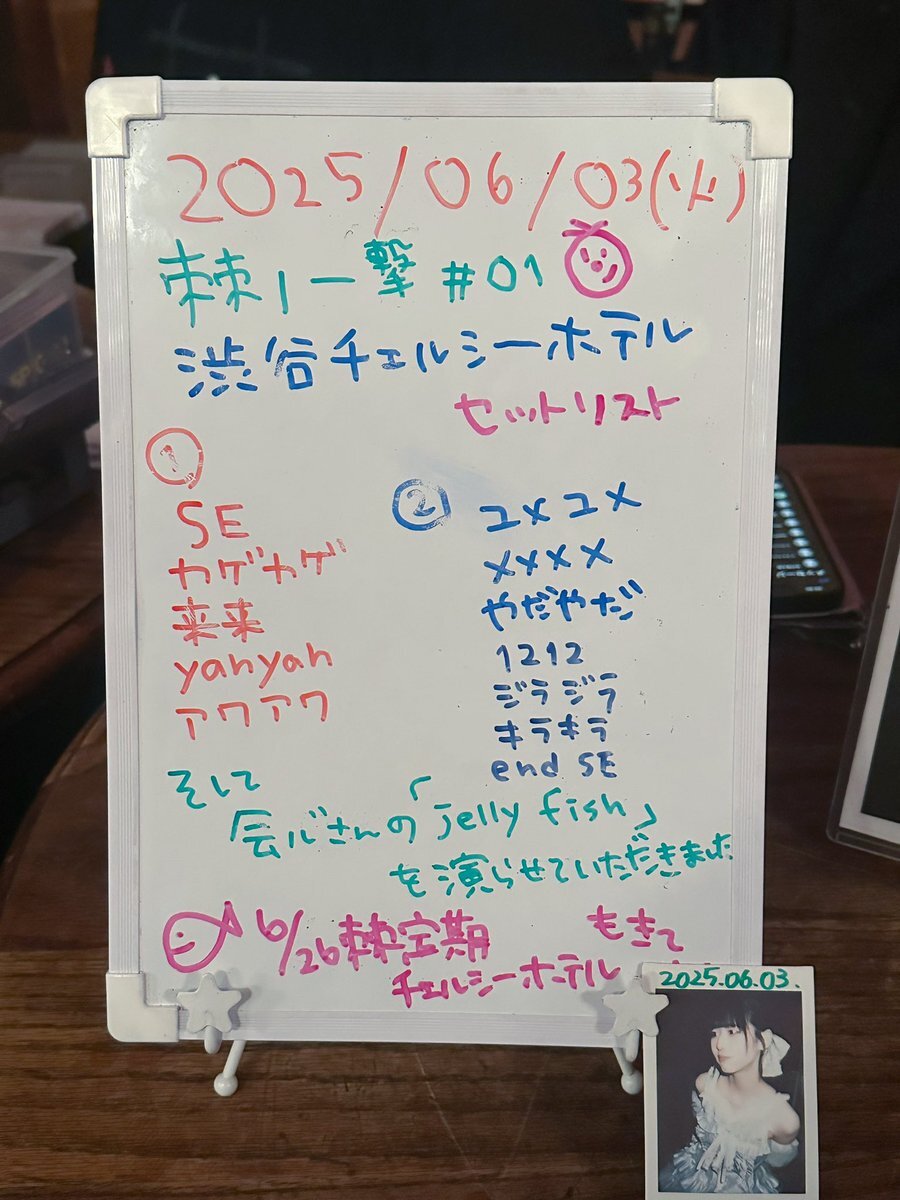 2025/06/03(火)
棘ノ一撃 #01
渋谷チェルシーホテル
セットリスト
①
SE
カゲカゲ
来来
yanyan
アワアワ
②
ユメユメ
××××
やだやだ
1212
ジラジラ
キラキラ
end SE
そして
会心さんの「jelly fish」
を演らせていただきました
6/26棘定期 もきて
チェルシーホテル
2025.06.03.